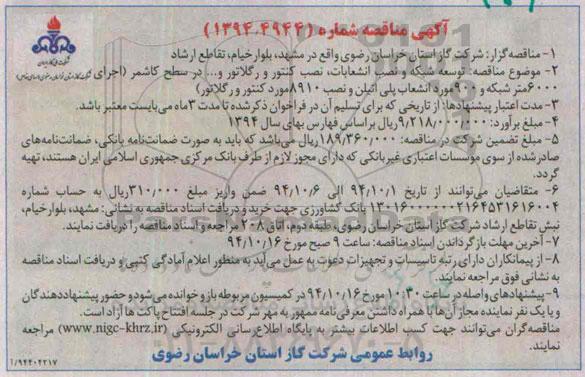 آگهی مناقصه شماره (۱۳۹۴.۴۹۴۴)
شرکت ملی گاز ایران
۱- مناقصه‌گزار: شرکت گاز استان خراسان رضوی واقع در مشهد، بلوار خیام، تقاطع ارشاد
۲- موضوع مناقصه: توسعه شبکه و نصب انشعابات، نصب کنتور و رگلاتور و... در سطح کاشمر (اجرای
۶۰۰۰ متر شبکه و ۹۰۰ مورد انشعاب پلی اتیلن و نصب ۸۹۱۰ مورد کنتور و رگلاتور)
۳- مدت اعتبار پیشنهادها: از تاریخی که برای تسلیم آن در فراخوان ذکر شده تا مدت ۳ ماه می‌بایست معتبر باشد.
۴- مبلغ برآورد: ۹,۲۱۸,۰۰۰,۰۰۰ ریال بر اساس فهارس بهای سال ۱۳۹۴
۵- مبلغ تضمین شرکت در مناقصه: ۱۸۹,۳۶۰,۰۰۰ ریال می‌باشد که باید به صورت ضمانت‌نامه بانکی، ضمانت‌نامه‌های
صادرشده از سوی مؤسسات اعتباری غیربانکی که دارای مجوز لازم از طرف بانک مرکزی جمهوری اسلامی ایران هستند، تهیه
گردد.
۶- متقاضیان می‌توانند از تاریخ ۹۴/۱۰/۱ الی ۹۴/۱۰/۶ ضمن واریز مبلغ ۳۱۰,۰۰۰ ریال به حساب شماره
بانک کشاورزی جهت خرید و دریافت اسناد مناقصه به نشانی: مشهد، بلوار خیام،
نبش تقاطع ارشاد شرکت گاز استان خراسان رضوی، طبقه دوم، اتاق ۲۰۸ مراجعه و اسناد مناقصه را دریافت نمایند.
۷- آخرین مهلت بازگرداندن اسناد مناقصه: ساعت ۹ صبح مورخ ۹۴/۱۰/۱۶
۸- از پیمانکاران دارای رتبه تاسیسات و تجهیزات دعوت به عمل می‌آید به منظور اعلام آمادگی کتبی و دریافت اسناد مناقصه
به نشانی فوق مراجعه نمایند.
۹- پیشنهادهای واصله در ساعت ۱۰:۳۰ مورخ ۹۴/۱۰/۱۶ در کمیسیون مربوطه باز و خوانده می‌شود و حضور پیشنهاددهندگان
و یا یک نفر نماینده مجاز آن‌ها با همراه داشتن معرفی‌نامه ممهور به مهر شرکت در جلسه افتتاح پاکت ها آزاد است.
مناقصه‌گران می‌توانند جهت کسب اطلاعات بیشتر به پایگاه اطلاع‌رسانی الکترونیکی (www.nigc-khrz.ir) مراجعه
نمایند.
روابط عمومی شرکت گاز استان خراسان رضوی
۱/۹۴۴۰۴۲۱۷
ParsNamadData